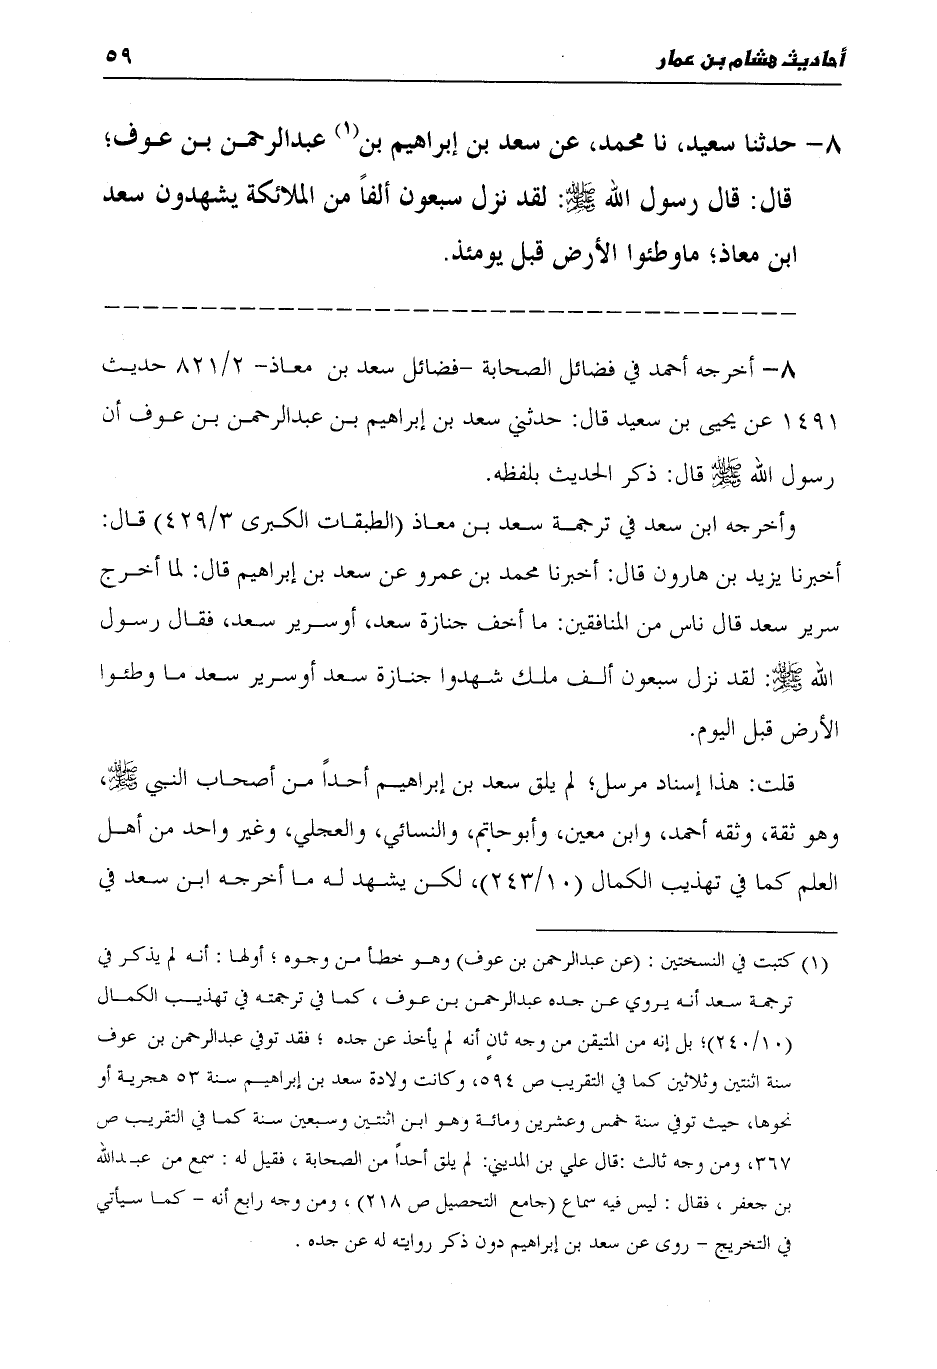 أحاديث هشام بن عمار ٥٩
٨- حدثنا سعيد، نا محمد، عن سعد بن إبراهيم بن(١) عبدالرحمن بن عوف؛
قال: قال رسول الله ﷺ: لقد نزل سبعون ألفاً من الملائكة يشهدون سعد
ابن معاذ؛ ماوطئوا الأرض قبل يومئذ.
٨- أخرجه أحمد في فضائل الصحابة -فضائل سعد بن معاذ- ٨٢١/٢ حديث
١٤٩١ عن يحيى بن سعيد قال: حدثني سعد بن إبراهيم بن عبدالرحمن بن عوف أن
رسول الله ﷺ قال: ذكر الحديث بلفظه.
وأخرجه ابن سعد في ترجمة سعد بن معاذ (الطبقات الكبرى ٤٢٩/٣) قال:
أخبرنا يزيد بن هارون قال: أخبرنا محمد بن عمرو عن سعد بن إبراهيم قال: لما أخرج
سرير سعد قال ناس من المنافقين: ما أخف جنازة سعد، أوسرير سعد، فقال رسول
الله ﷺ: لقد نزل سبعون ألف ملك شهدوا جنازة سعد أوسرير سعد ما وطئوا
الأرض قبل اليوم.
قلت: هذا إسناد مرسل؛ لم يلق سعد بن إبراهيم أحداً من أصحاب النبي ﷺ،
وهو ثقة، وثقه أحمد، وابن معين، وأبوحاتم، والنسائي، والعجلي، وغير واحد من أهل
العلم كما في تهذيب الكمال (٢٤٣/١٠)، لكن يشهد له ما أخرجه ابن سعد في
(١) كتبت في النسختين : (عن عبدالرحمن بن عوف) وهو خطأ من وجوه ؛ أولها : أنه لم يذكر في
ترجمة سعد أنه يروي عن جده عبدالرحمن بن عوف ، كما في ترجمته في تهذيب الكمال
(٢٤٠/١٠)؛ بل إنه من المتيقن من وجه ثانٍ أنه لم يأخذ عن جده ؛ فقد توفي عبدالرحمن بن عوف
سنة اثنتين وثلاثين كما في التقريب ص ٥٩٤، وكانت ولادة سعد بن إبراهيم سنة ٥٣ هجرية أو
نحوها، حيث توفي سنة خمس وعشرين ومائة وهو ابن اثنتين وسبعين سنة كما في التقريب ص
٣٦٧، ومن وجه ثالث :قال علي بن المديني: لم يلق أحداً من الصحابة ، فقيل له : سمع من عبدالله
بن جعفر ، فقال : ليس فيه سماع (جامع التحصيل ص ٢١٨) ، ومن وجه رابع أنه - كما سيأتي
في التخريج - روى عن سعد بن إبراهيم دون ذكر روايته له عن جده .